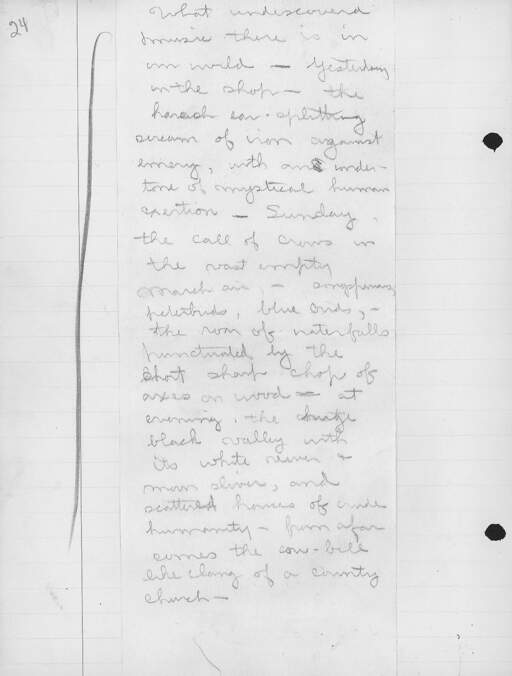 24
What undiscovered
music there is in
our world — Yesterday
in the shop — the
harsh ear-splitting
scream of iron against
emery, with an under-
tone of mystical human
exertion — Sunday,
the call of crows in
the vast empty
March air, — song sparrows,
blue birds, —
the roar of waterfalls
punctuated by the
short sharp chop of
axes on wood — at
evening, the huge
black valley with
its white river &
moon sliver, and
scattered houses of crude
humanity — from afar
comes the cow-bell
like clang of a country
church —